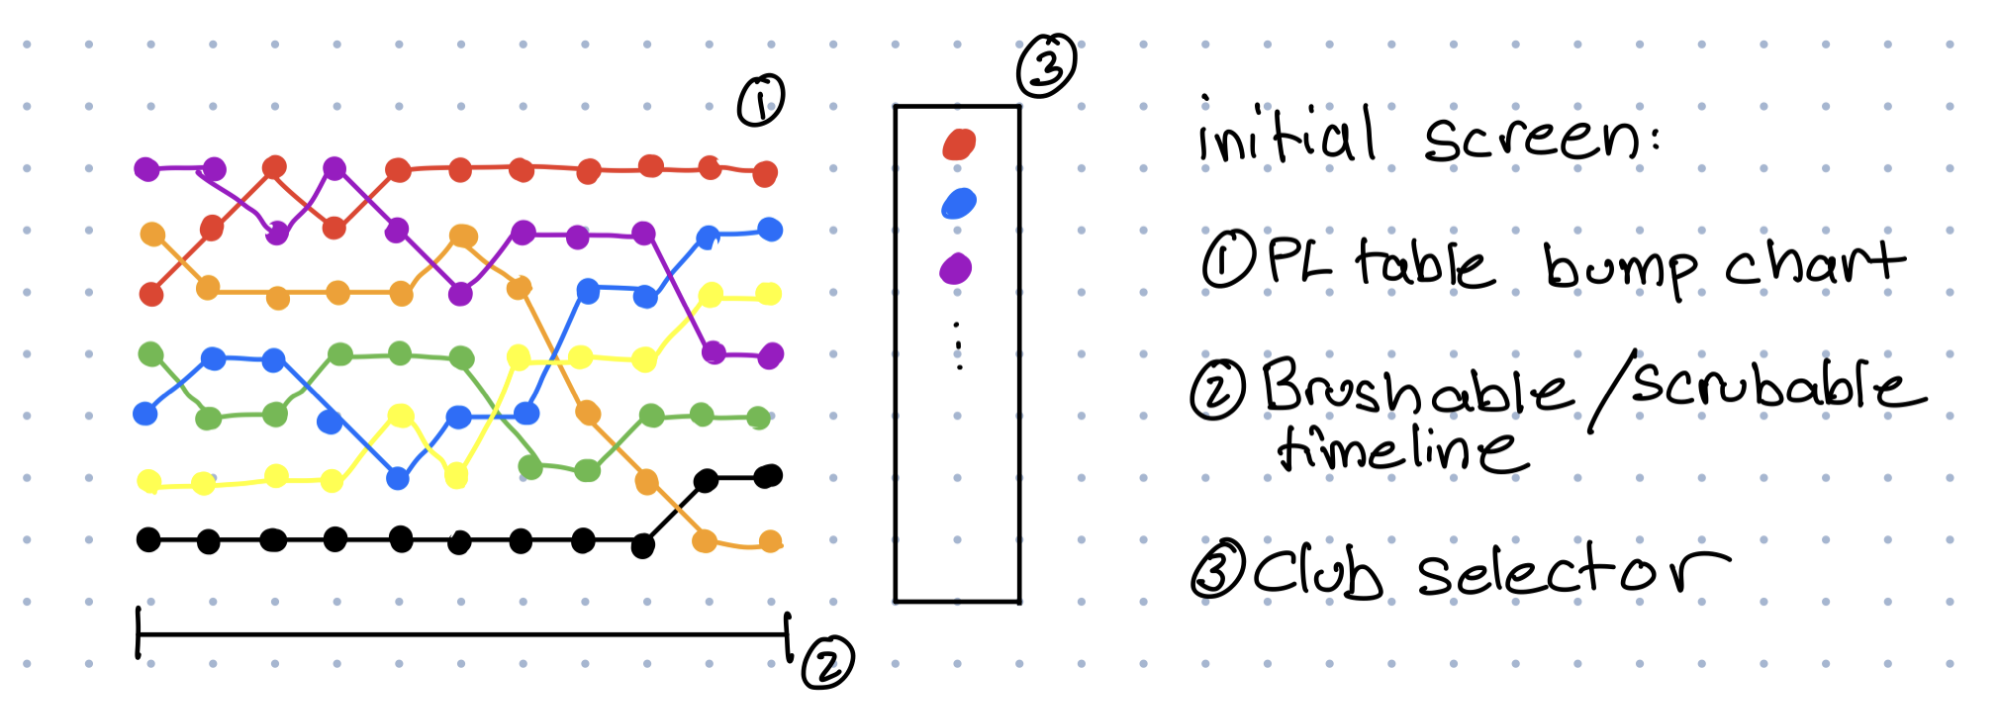 ①
③
initial screen:
① PL table bump chart
② Brushable/scrubable
timeline
③ Club selector
②